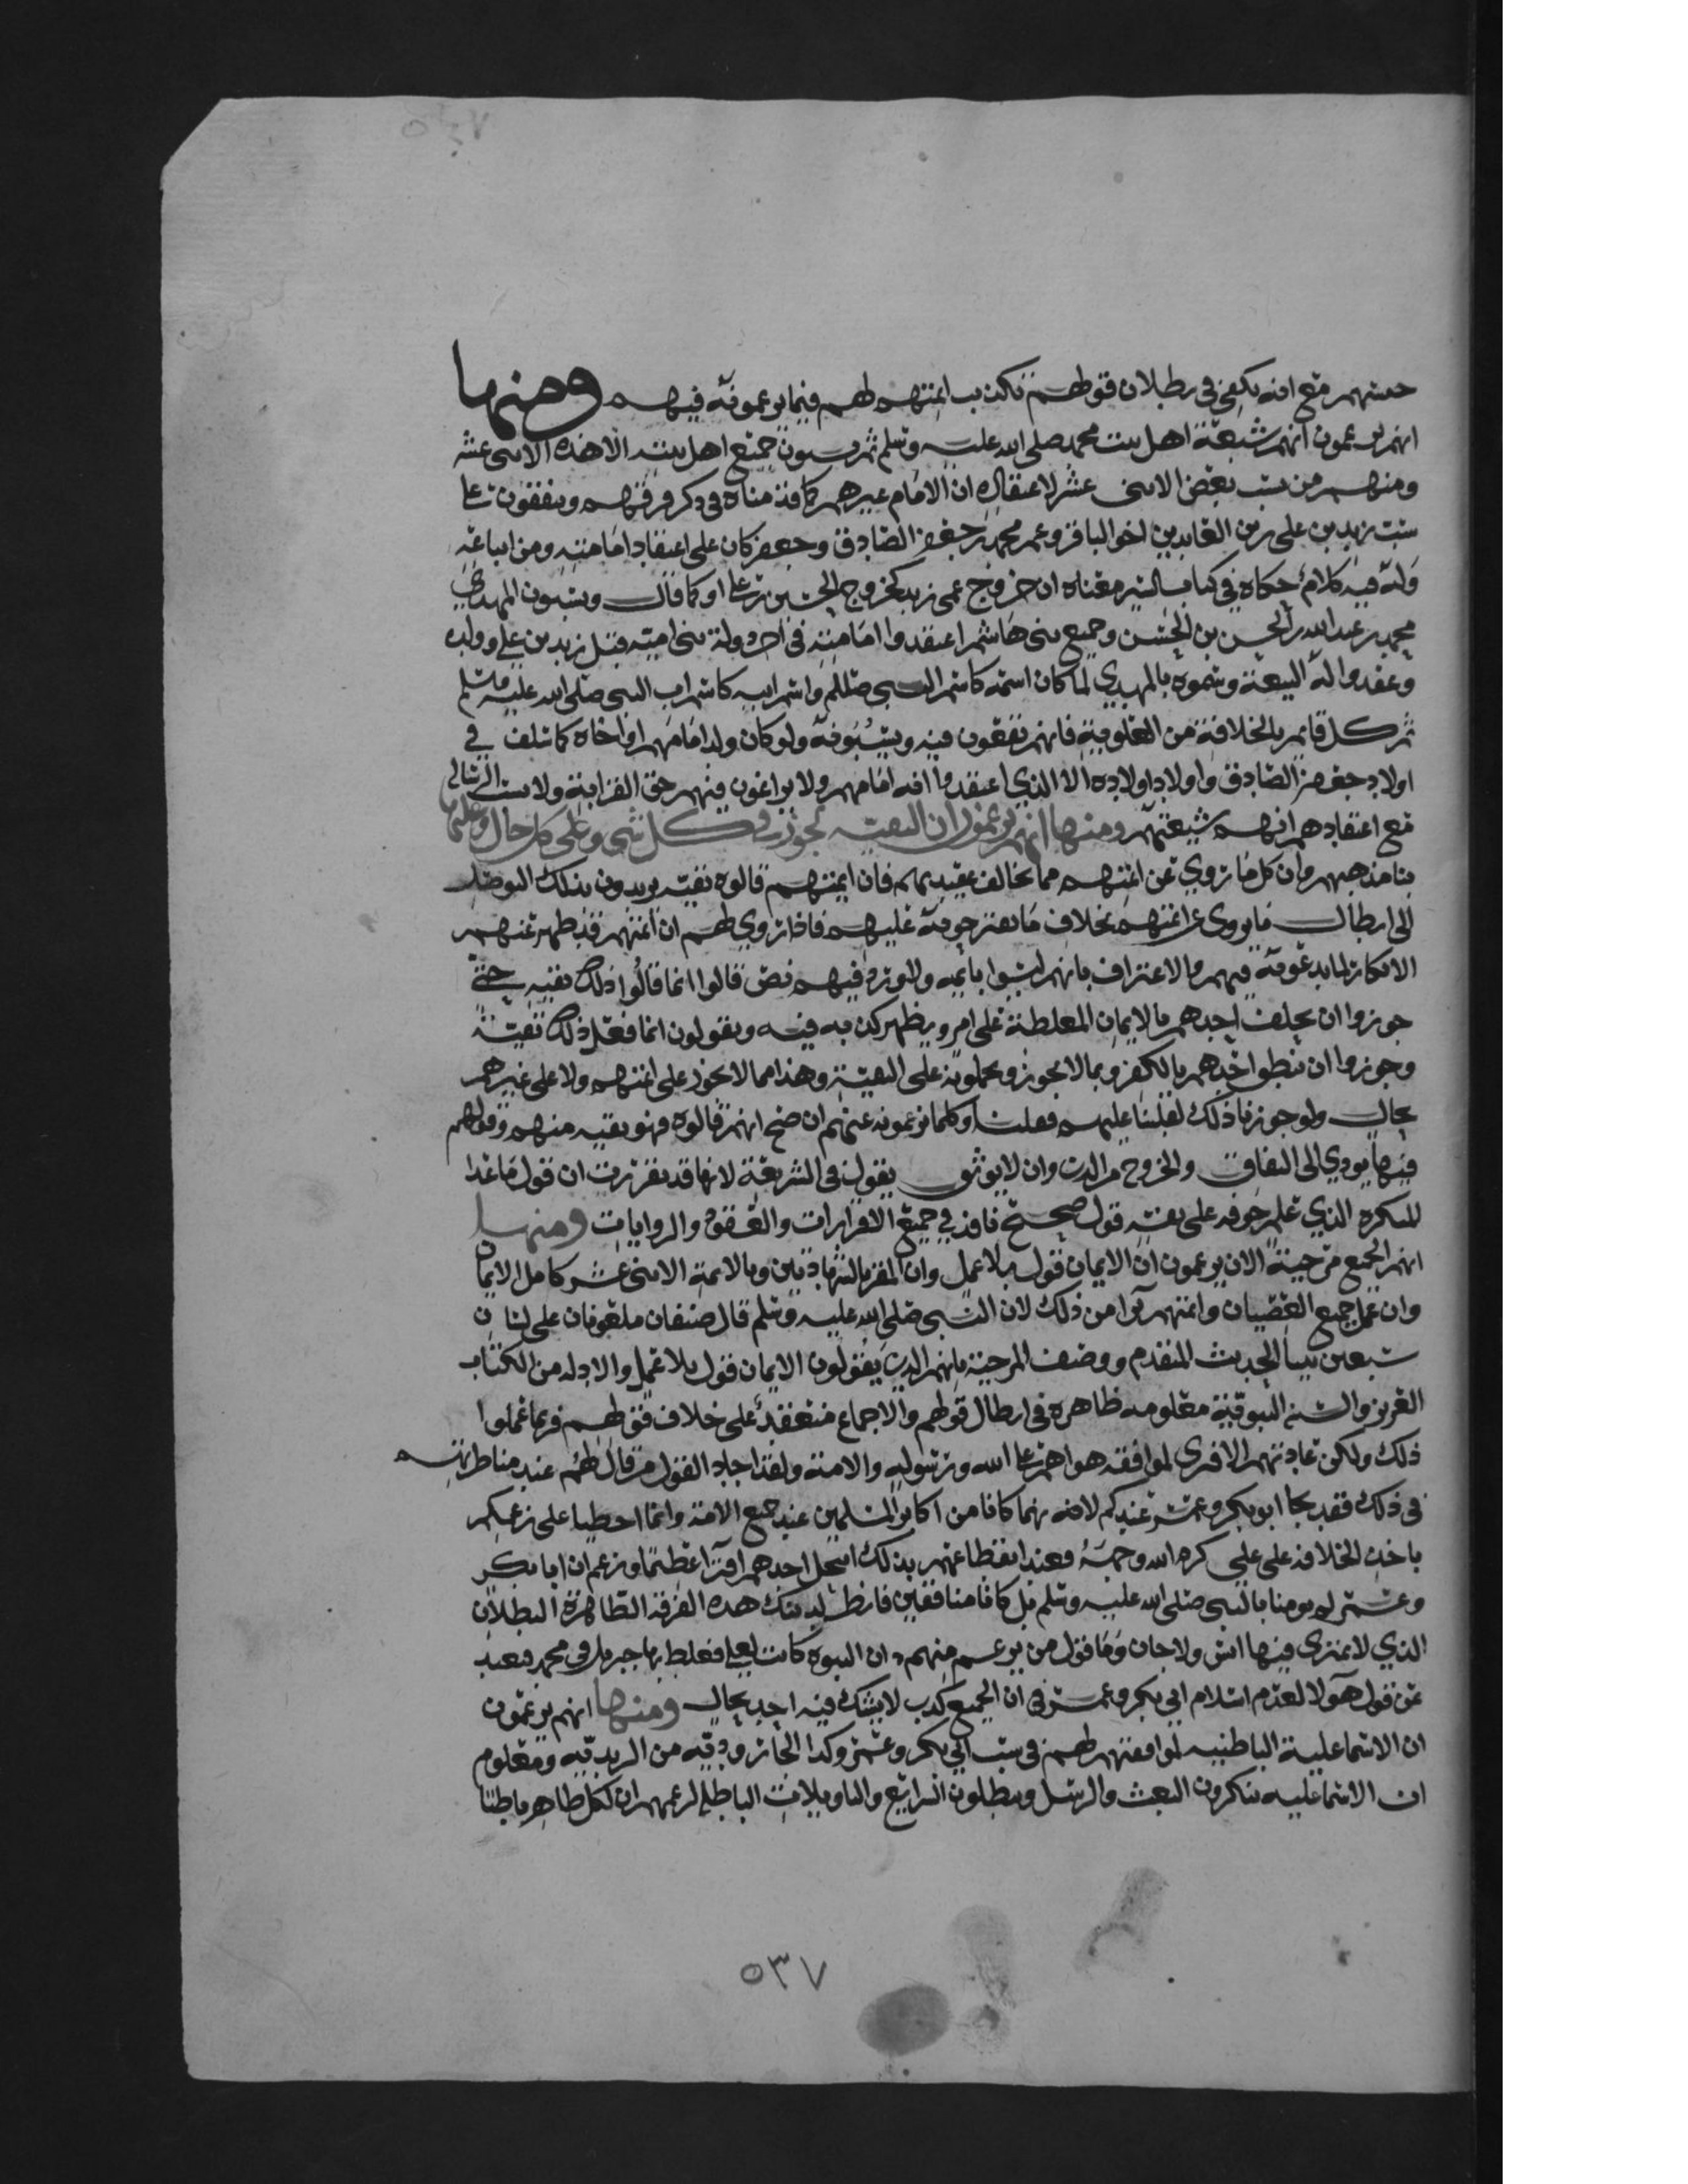 مع انه يكفي في بطلان قولهم تكذيب ائمتهم لهم فيما يزعمونه فيهم ومنها
انهم يزعمون انهم شيعة اهل بيت محمد صلى الله عليه وسلم ثم يسبون جميع اهل بيته الا هذه الاثنى عشر
ومنهم من يسب بعض الاثنى عشر لاعتقاده ان الامام غيرهم كما قدمناه في ذكر فرقهم ويتفقون على
سب زيد بن علي زين العابدين اخو الباقر وعم محمد بن جعفر الصادق وجعفر كان على اعتقاد امامته ومن اتباعه
وله فيه كلام حكاه في كتاب السير معناه ان خروج عمي زيد كخروج الحسين بن علي او كما قال ويسبون المهدي
محمد بن عبد الله بن الحسن بن الحسن وجميع بني هاشم اعتقدوا امامته في اخر دولة بني امية قبل زيد بن علي وولده
وعقدوا له البيعة وسموه بالمهدي لما كان اسمه كاسم النبي صللم واسم ابيه كاسم اب النبي صلى الله عليه وسلم
ثم كل قائم بالخلافة من العلوية فانهم يقعون فيه ويسبونه ولو كان ولد امامهم او اخاه كما سلف في
اولاد جعفر الصادق واولاد اولاده الا الذي اعتقدوا انه امامهم ولا يراعون فيهم حق القرابة ولا
مع اعتقادهم انهم شيعتهم ومنها انهم يزعمون ان التقية تجوز في كل شي وعلى كل حال وعليها
بنا مذهبهم وان كل ما روي عن ائمتهم مما يخالف عقيدتهم فان ايمتهم قالوه تقية يريدون بذلك التوصل
الى ابطال ما يروى عن ائمتهم بخلاف ما يعترجونه عليهم فاذا روي لهم ان ائمتهم قد ظهر عنهم
الانكار لما يدعونه فيهم والاعتراف بانهم ليسوا بايمه ولم يرد فيهم نص قالوا انما قالوا ذلك تقيه حتى
جوزوا ان يحلف احدهم بالايمان المغلظة على امر ويظهر كذبه فيه ويقولون انما فعل ذلك تقية
وجوزوا ان ينطق احدهم بالكفر وبما لا يجوز ويحملونه على التقية وهذا مما لا يجوز على ائمتهم ولا على غيرهم
بحال ولو جوزنا ذلك لقلبنا عليهم فقلنا وكلما تزعمونه عنهم ان صح انهم قالوه فهو تقيه منهم وقولهم
فيها يودي الى النفاق والخروج من الدين وان لا يوثق بقول في الشريعة لانها قد تقررت ان قول ما عدا
المكره الذي علم خوفه على نفسه قول صحيح نافذ في جميع الاقرارات والعقود والروايات ومنها
انهم الجميع مرجية الان يزعمون ان الايمان قول بلا عمل وان المقر بالشهادتين وبالائمة الاثنى عشر كامل الايمان
وان عمل جميع العصيان وائمتهم برآ من ذلك لان النبي صلى الله عليه وسلم قال صنفان ملعونان على لسان
سبعين نبيا الحديث المتقدم ووصف المرجية بانهم الذين يقولون الايمان قول بلا عمل والادله من الكتاب
العزيز والسنة النبوية معلومه ظاهرة في ابطال قولهم والاجماع منعقد على خلاف قولهم فربما علموا
ذلك ولكن عادتهم الافترى لموافقه هواهم على الله ورسوله والامة ولقد اجاد القول من قال لهم عند مناظرتهم
في ذلك فقد نجا ابو بكر وعمر عندكم لانه نهما كانا من اكابر المسلمين عند جميع الامة وانما اخطيا على زعمكم
باخذ الخلافة على علي كرم الله وجهه وعند انقطاعهم بذلك انتحل احدهم افترا عظيما وزعم ان ابا بكر
وعمر لم يومنا بالنبي صلى الله عليه وسلم بل كانا منافقين فانظر لدينك هذه الفرقة الظاهرة البطلان
الذي لا يمتري فيها انس ولا جان وما قول من يزعم منهم ان النبوه كانت لعلي فغلط بها جبريل في محمد فبعد
عن قول هولا لعدم اسلام ابي بكر وعمر في ان الجميع كذب لا يشك فيه احد بحال ومنها انهم يزعمون
ان الاسماعلية الباطنيه لموافقتهم لهم في سب ابي بكر وعمر وكذا الجارودية من الزيديه ومعلوم
ان الاسماعليه ينكرون البعث والرسل ويبطلون الشرايع والتاويلات الباطلة لزعمهم ان لكل ظاهر باطنا
٥٣٧